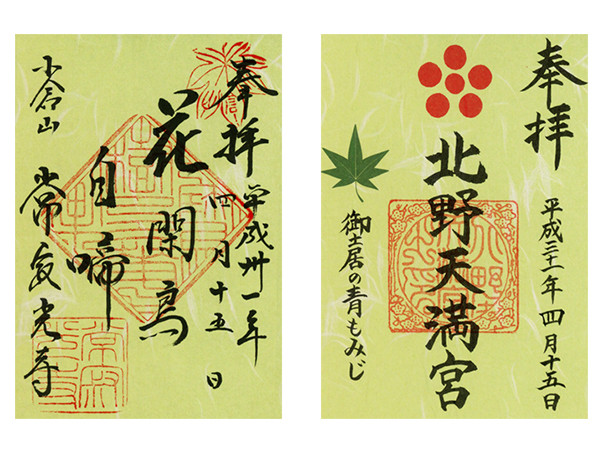 奉拝
平成卅一年
四月十五日
花閑鳥
自啼
小倉山
常寂光寺
奉拝
平成三十一年四月十五日
北野天満宮
御土居の青もみじ